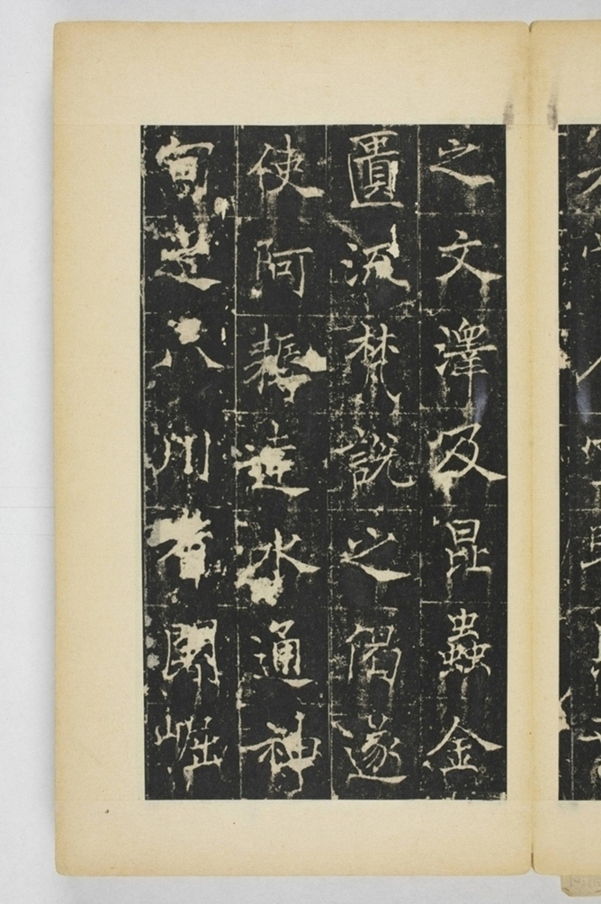 之文澤及昆蟲金
匱流梵說之偈遂
使阿耨達水通神
甸之八川耆闍崛